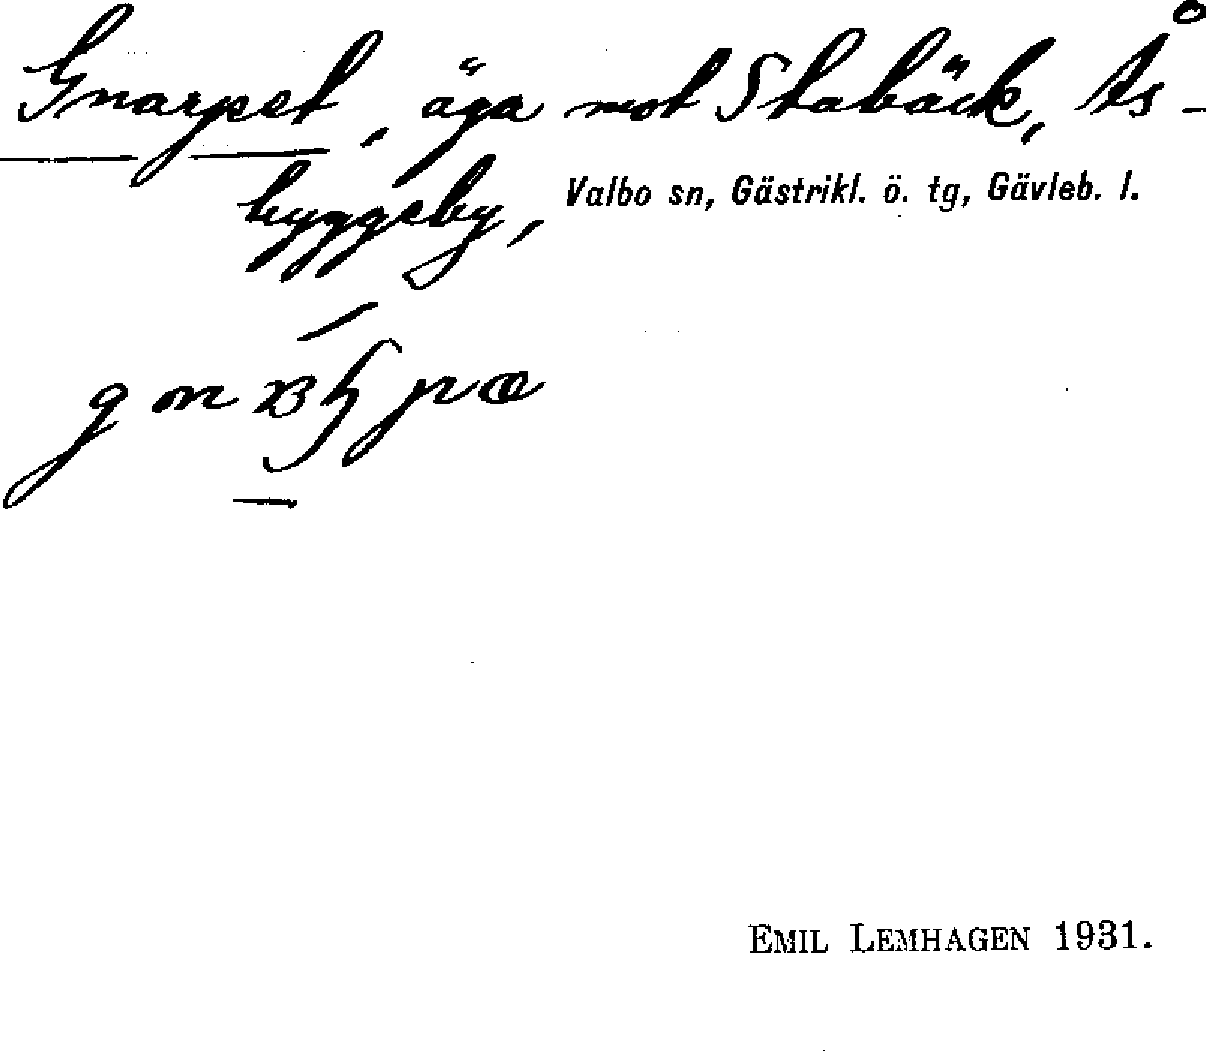 Gnarpet, äga mot Stabäck, Ås-
byggeby, Valbo sn, Gästrikl. ö. tg, Gävleb. l.
EMIL LEMHAGEN 1931.